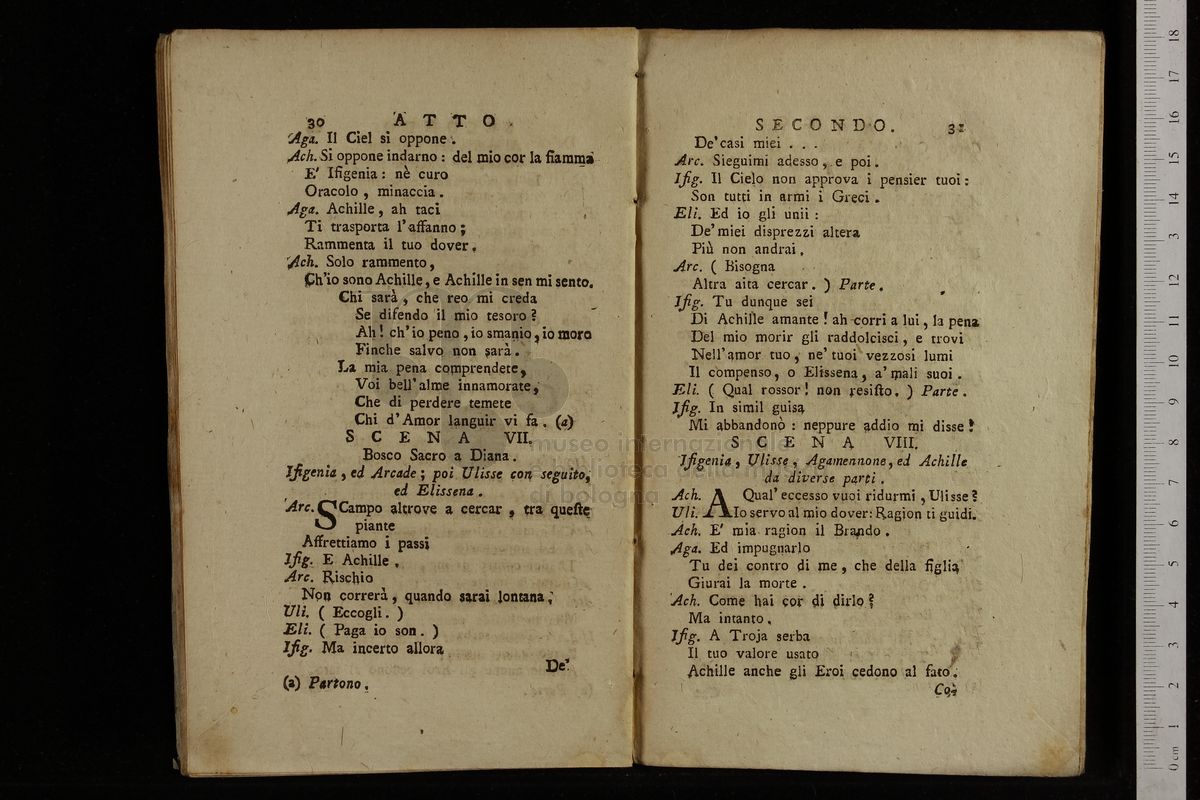 30 ATTO.
Aga. Il Ciel si oppone.
Ach. Si oppone indarno: del mio cor la fiamma
E' Ifigenia: nè curo
Oracolo, minaccia.
Aga. Achille, ah taci
Ti trasporta l'affanno;
Rammenta il tuo dover.
Ach. Solo rammento,
Ch'io sono Achille, e Achille in sen mi sento.
Chi sarà, che reo mi creda
Se difendo il mio tesoro?
Ah! ch'io peno, io smanio, io moro
Finche salvo non sarà.
La mia pena comprendete,
Voi bell'alme innamorate,
Che di perdere temete
Chi d'Amor languir vi fa. (a)
SCENA VII.
Bosco Sacro a Diana.
Ifigenia, ed Arcade; poi Ulisse con seguito,
ed Elissena.
Arc. SCampo altrove a cercar, tra queste
piante
Affrettiamo i passi
Ifig. E Achille.
Arc. Rischio
Non correrà, quando sarai lontana.
Uli. ( Eccogli. )
Eli. ( Paga io son. )
Ifig. Ma incerto allora
De'
(a) Partono.
SECONDO. 31
De'casi miei . . .
Arc. Sieguimi adesso, e poi.
Ifig. Il Cielo non approva i pensier tuoi:
Son tutti in armi i Greci.
Eli. Ed io gli unii:
De'miei disprezzi altera
Più non andrai.
Arc. ( Bisogna
Altra aita cercar. ) Parte.
Ifig. Tu dunque sei
Di Achille amante! ah corri a lui, la pena
Del mio morir gli raddolcisci, e trovi
Nell'amor tuo, ne'tuoi vezzosi lumi
Il compenso, o Elissena, a'mali suoi.
Eli. ( Qual rossor! non resisto. ) Parte.
Ifig. In simil guisa
Mi abbandonò: neppure addio mi disse!
SCENA VIII.
Ifigenia, Ulisse, Agamennone, ed Achille
da diverse parti.
Ach. A Qual'eccesso vuoi ridurmi, Ulisse?
Uli. Io servo al mio dover: Ragion ti guidi.
Ach. E' mia ragion il Brando.
Aga. Ed impugnarlo
Tu dei contro di me, che della figlia
Giurai la morte.
Ach. Come hai cor di dirlo?
Ma intanto.
Ifig. A Troja serba
Il tuo valore usato
Achille anche gli Eroi cedono al fato.
Così
museo internazionale
e biblioteca della musica
di bologna
0 cm 1 2 3 4 5 6 7 8 9 10 11 12 13 14 15 16 17 18